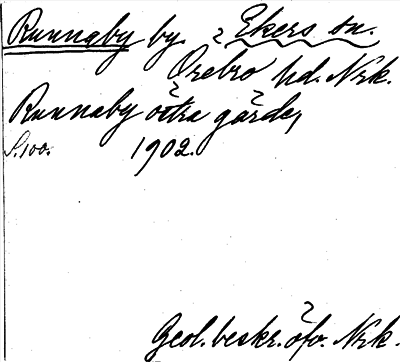 Runnaby by. Ekers sn.
Örebro hd. Nrk.
Runnaby östra gärde,
S. 100. 1902.
Geol. beskr. öfv. Nrk.